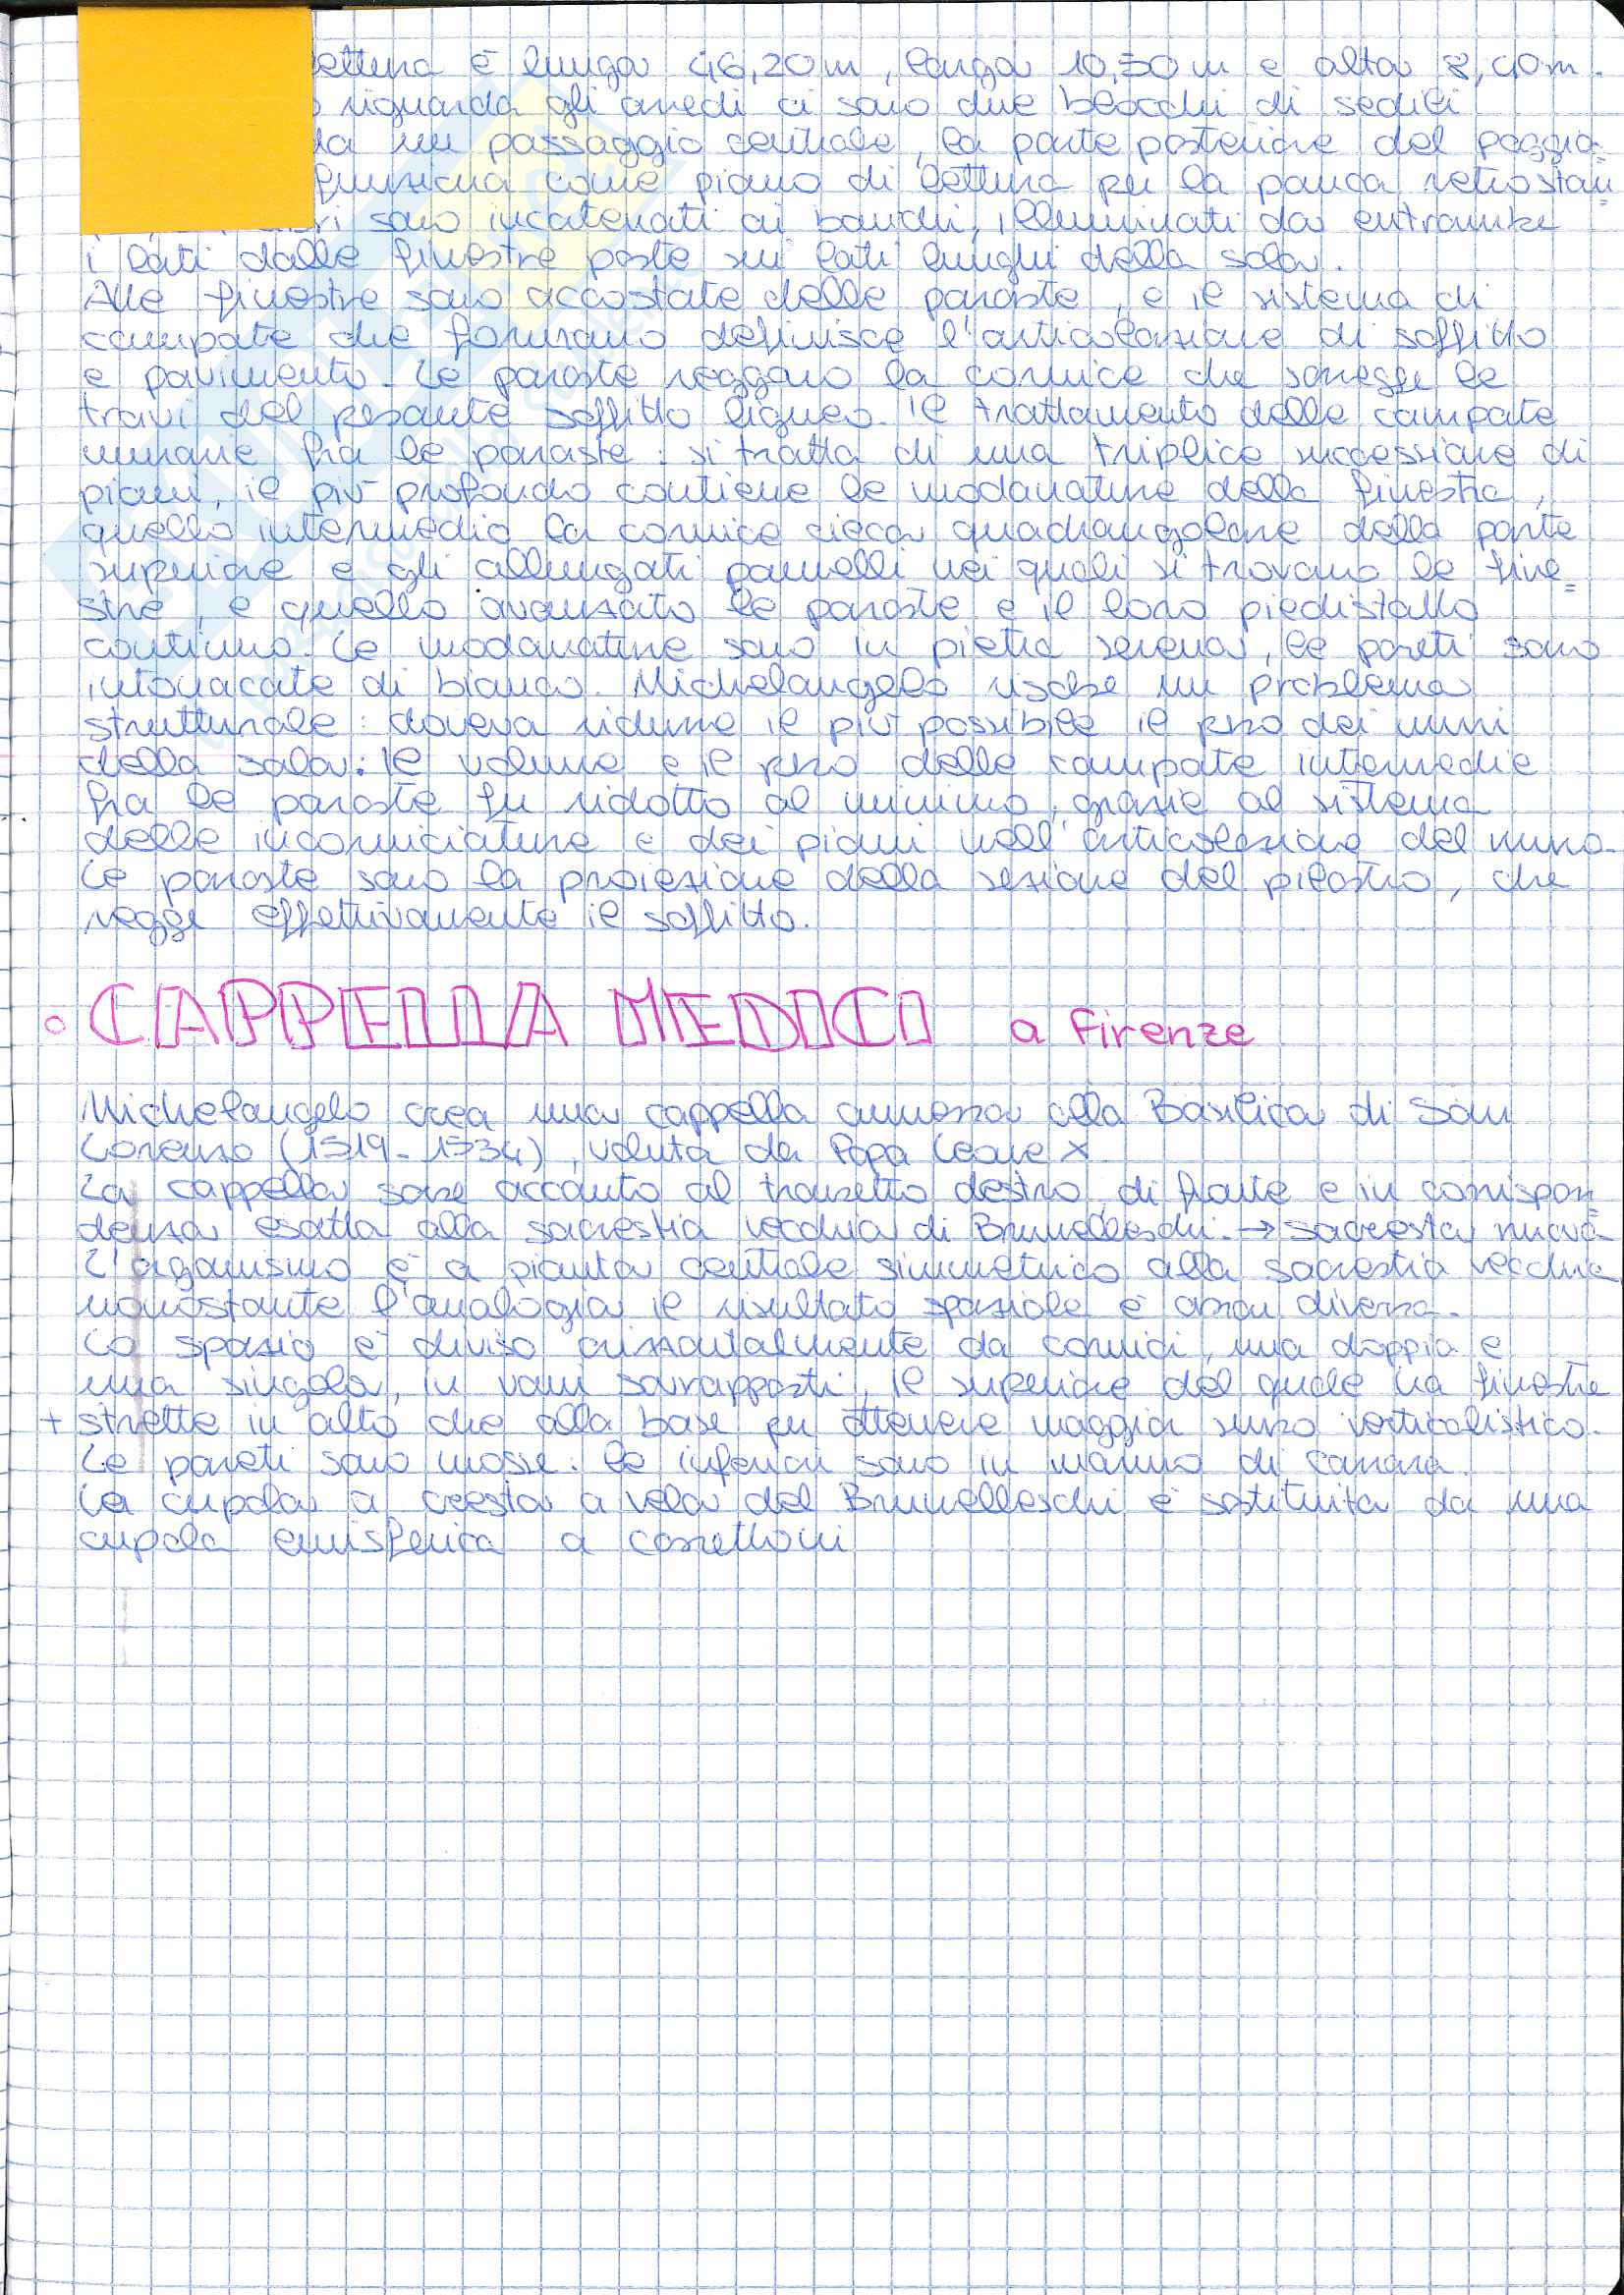 lettura è lunga 46,20m, larga 10,50m e alta 8,40m.
riguarda gli arredi ci sono due blocchi di sedili
da un passaggio centrale, la parte posteriore del poggia=
funziona come piano di lettura per la panca retrostan
sono incatenati ai banchi, illuminati da entrambe
i lati dalle finestre poste sui lati lunghi della sala.
Alle finestre sono accostate delle paraste, e il sistema di
campate che formano definisce l'articolazione di soffitto
e pavimento. Le paraste reggono la cornice che sorregge le
travi del pesante soffitto ligneo. Il trattamento delle campate
murarie fra le paraste: si tratta di una triplice successione di
piani, il più profondo contiene le modanature della finestra,
quello intermedio la cornice cieca quadrangolare della parte
superiore e gli allungati pannelli nei quali si trovano le fine=
stre, e quello avanzato le paraste e il loro piedistallo
continuo. Le modanature sono in pietra serena, le pareti sono
intonacate di bianco. Michelangelo risolse un problema
strutturale: doveva ridurre il più possibile il peso dei muri
della sala: il volume e il peso delle campate intermedie
fra le paraste fu ridotto al minimo, grazie al sistema
delle incorniciature e dei piani nell'articolazione del muro.
Le paraste sono la proiezione della sezione del pilastro, che
regge effettivamente il soffitto.
CAPPELLA MEDICI a Firenze
Michelangelo crea una cappella annessa alla Basilica di San
Lorenzo (1519-1534), voluta da Papa Leone X
La cappella sorge accanto al transetto destro, di fronte e in corrispon=
denza esatta alla sacrestia vecchia di Brunelleschi. → sacrestia nuova
L'organismo è a pianta centrale simmetrico alla sacrestia vecchia
nonostante l'analogia il risultato spaziale è assai diverso.
Lo spazio è diviso orizzontalmente da cornici, una doppia e
una singola, in vani sovrapposti, il superiore del quale ha finestre
+ strette in alto che alla base per ottenere maggior senso verticalistico.
Le pareti sono mosse: le inferiori sono in marmo di Carrara.
La cupola a cresta a vela del Brunelleschi è sostituita da una
cupola emisferica a cassettoni